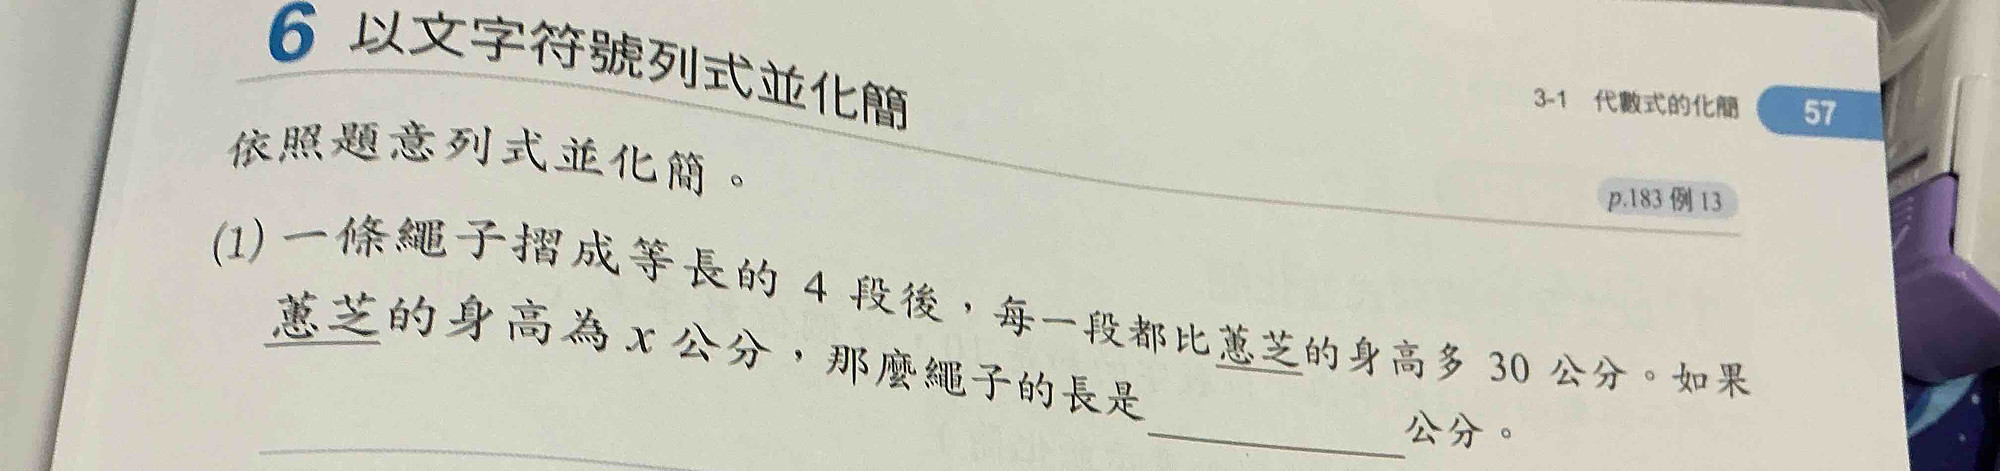 6 以文字符號列式並化簡
3-1 代數式的化簡 57
依照題意列式並化簡。
p.183 例 13
(1) 一條繩子摺成等長的 4 段後，每一段都比蕙芝的身高多 30 公分。如果
蕙芝的身高為 x 公分，那麼繩子的長是________公分。